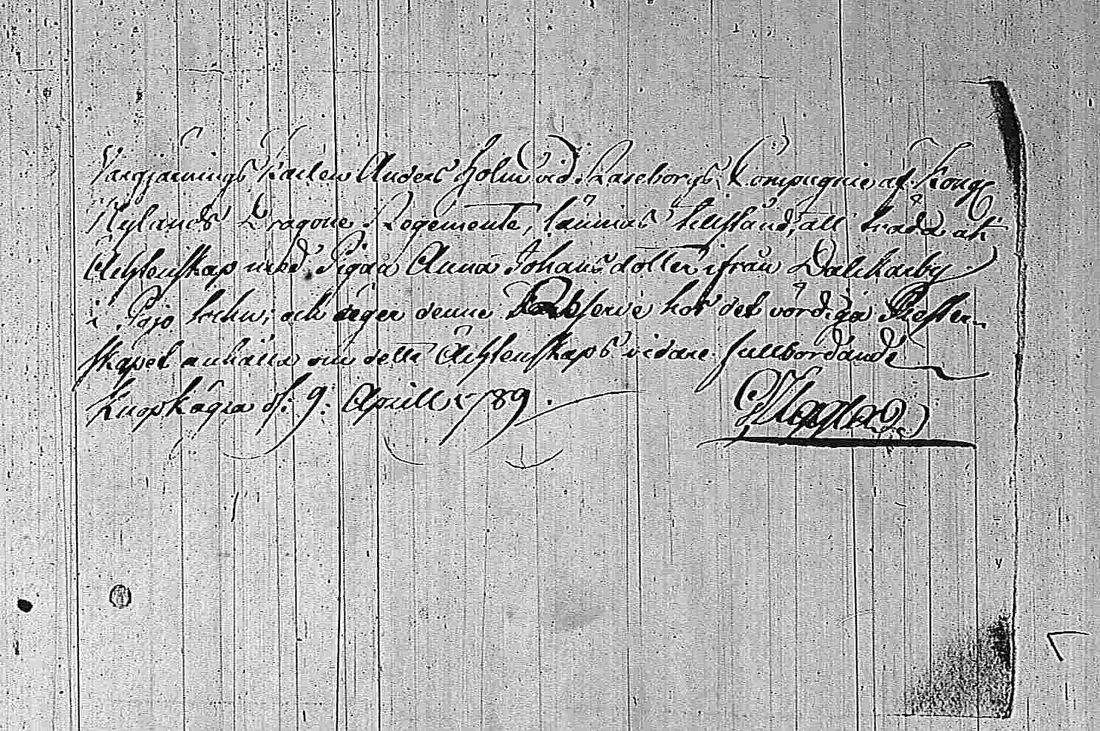 Vargjærings Karlen Anders Holm vid Raseborgs Compagnie af Kongl
Nylands Dragone Regemente, lämnas tillstånd, att träda uti
Ächtenskap med Pigan Anna Johansdotter ifrån Dalkarby
i Pojo Sochn; och äger denne hos det vördiga Prester-
skapet anhålla om detta Ächtenskaps vidare fullbordande
Knopkägra d: 9: Aprill 1789.